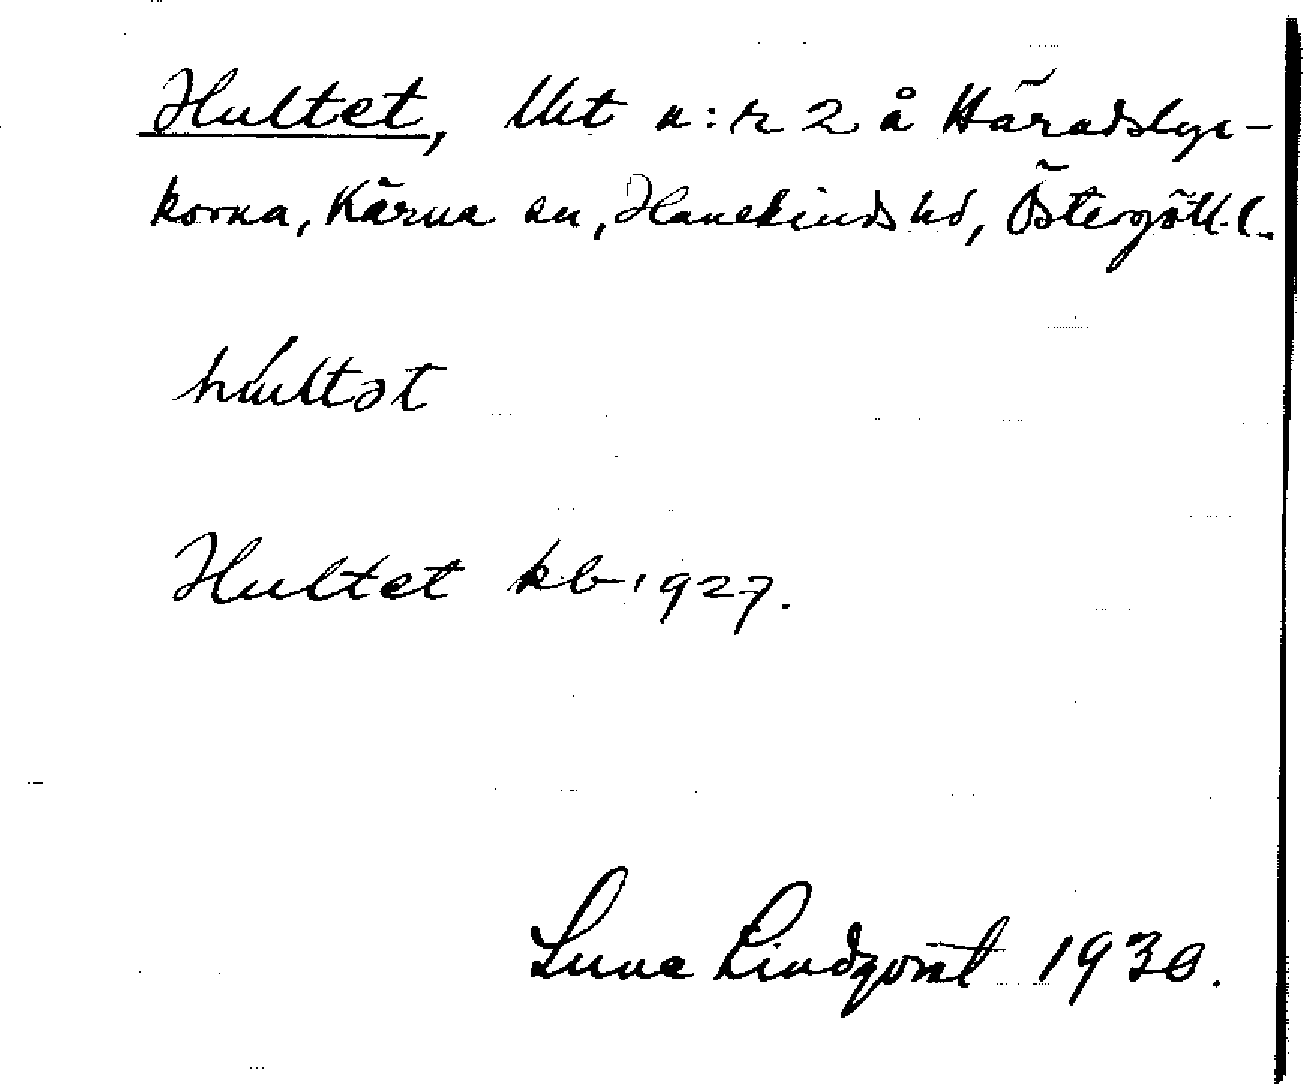 Hultet, lht n:r 2 å Häradslyc-
korna, Kärna sn, Hanekinds hd, Östergötl. l.
húltət
Hultet kb 1927.
Sune Lindqvist 1930.